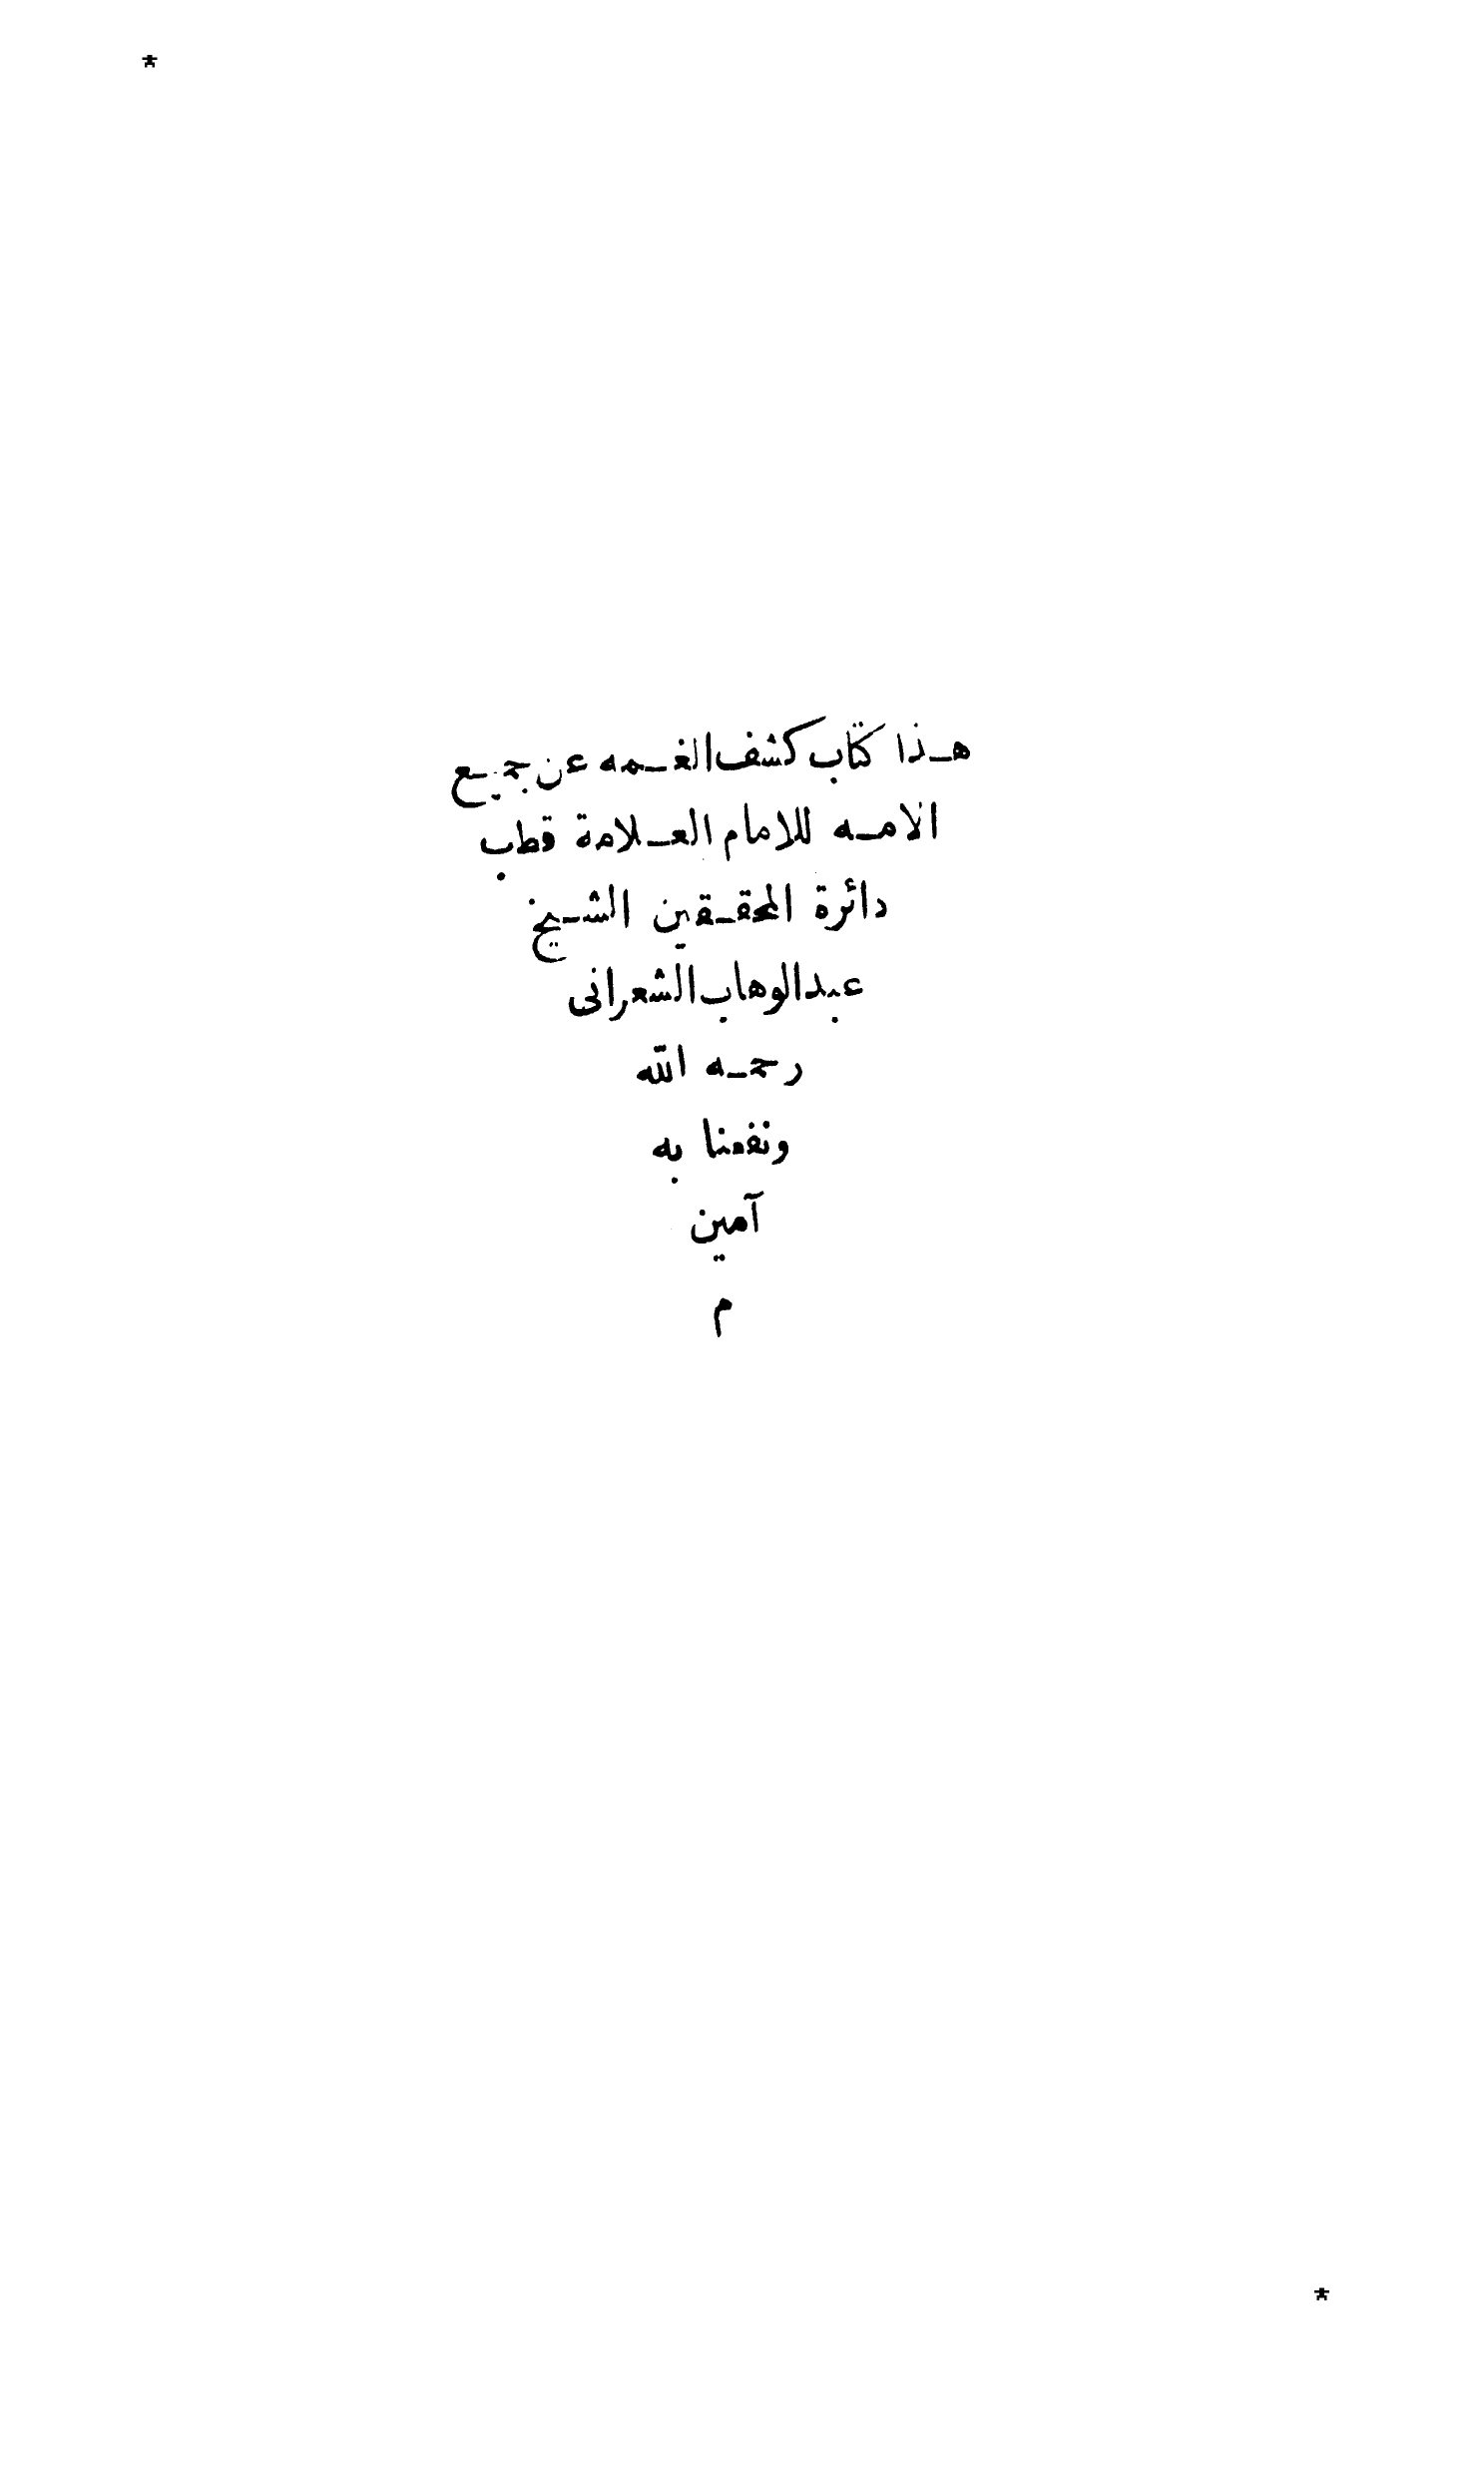 هـذا كتاب كشف الغـمه عن جميع
الامـه للامام العـلامة قطب
دائرة المحقـقين الشـيخ
عبد الوهاب الشعرانى
رحمـه الله
ونفعنا به
آمين
م